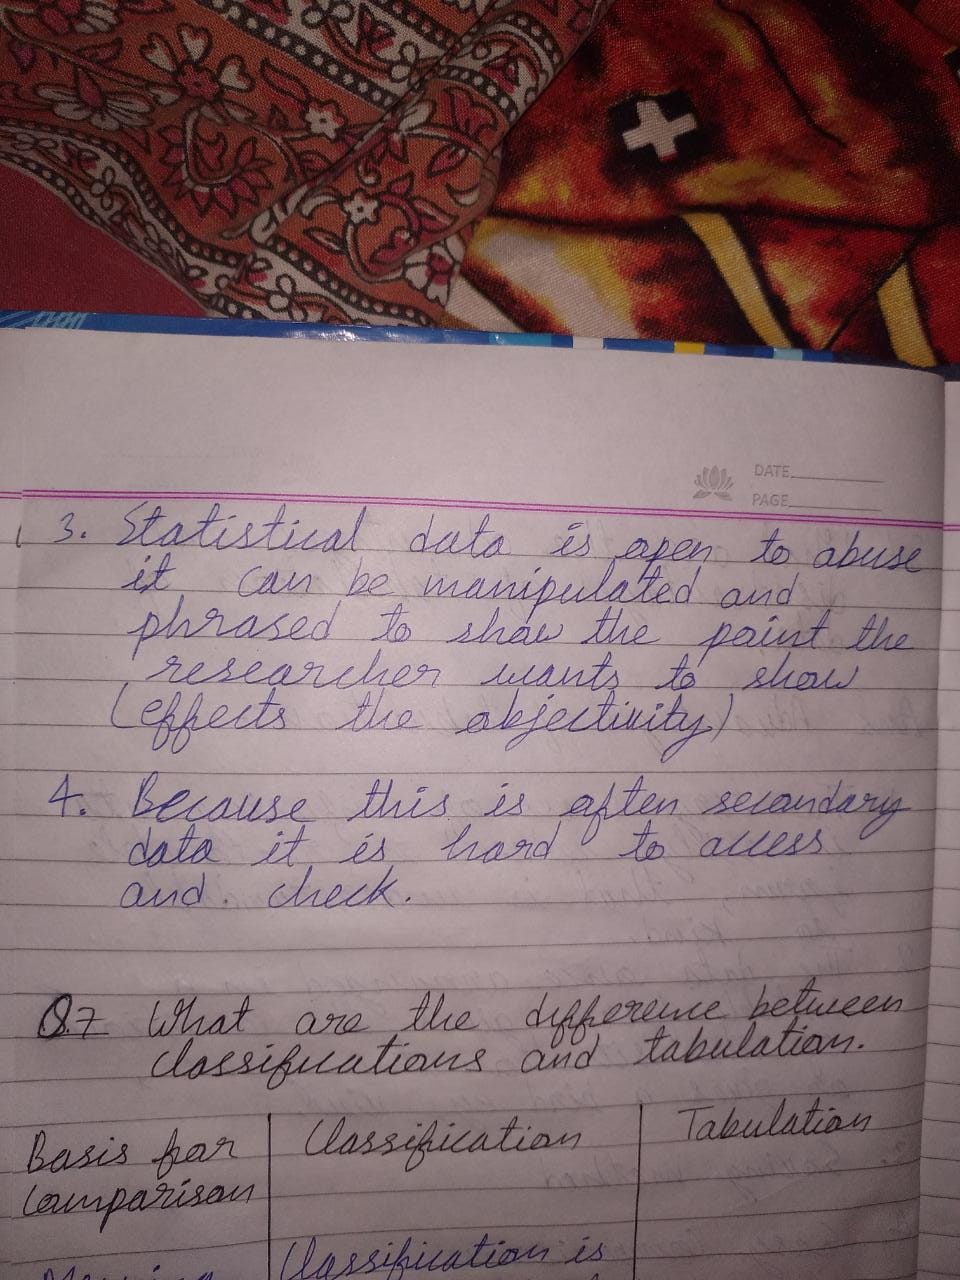 DATE
PAGE
3. Statistical data is open to abuse
it can be manipulated and
phrased to show the point the
researcher wants to show
(effects the objectivity)
4. Because this is often secondary
data it is hard to access
and. check.
Q.7 What are the difference between
classifications and tabulation.
Basis for
comparison
Classification
Tabulation
Classification is